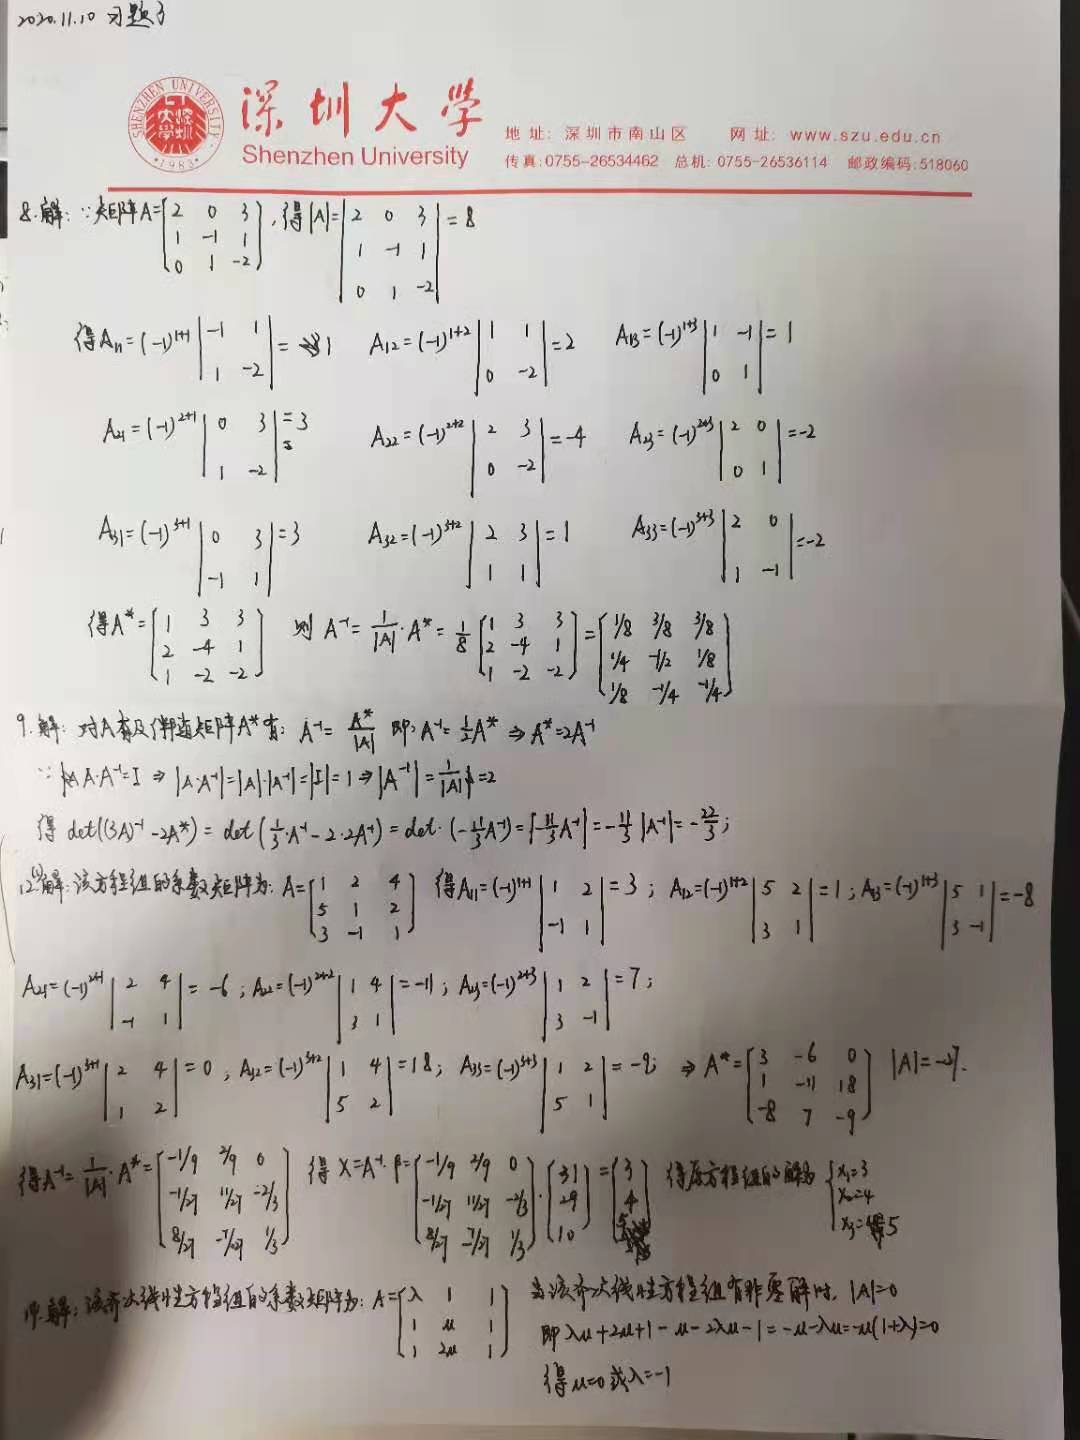 2020.11.10 习题3
深圳大学
Shenzhen University
SHENZHEN UNIVERSITY
1983
地址: 深圳市南山区 网址: www.szu.edu.cn
传真:0755-26534462 总机: 0755-26536114 邮政编码:518060
8.解: ∵矩阵A=[2 0 3; 1 -1 1; 0 1 -2], 得|A|=|2 0 3; 1 -1 1; 0 1 -2|=8
得A11=(-1)^1+1|-1 1; 1 -2|=1 A12=(-1)^1+2|1 1; 0 -2|=2 A13=(-1)^1+3|1 -1; 0 1|=1
A21=(-1)^2+1|0 3; 1 -2|=3 A22=(-1)^2+2|2 3; 0 -2|=-4 A23=(-1)^2+3|2 0; 0 1|=-2
A31=(-1)^3+1|0 3; -1 1|=3 A32=(-1)^3+2|2 3; 1 1|=1 A33=(-1)^3+3|2 0; 1 -1|=-2
得A*=[1 3 3; 2 -4 1; 1 -2 -2] 则A^-1=1/|A|·A*=1/8[1 3 3; 2 -4 1; 1 -2 -2]=[1/8 3/8 3/8; 1/4 -1/2 1/8; 1/8 -1/4 -1/4]
9.解: 对A有及伴随矩阵A*有: A^-1=A*/|A| 即: A^-1=1/2A* ⇒ A*=2A^-1
∵A·A^-1=I ⇒ |A·A^-1|=|A|·|A^-1|=|I|=1 ⇒ |A^-1|=1/|A|=2
得 det((3A)^-1-2A*)=det(1/3·A^-1-2·2A^-1)=det·(-11/3A^-1)=|-11/3A^-1|=-11/3|A^-1|=-22/3;
12.(1)解: 该方程组的系数矩阵为: A=[1 2 4; 5 1 2; 3 -1 1] 得A11=(-1)^1+1|1 2; -1 1|=3; A12=(-1)^1+2|5 2; 3 1|=1; A13=(-1)^1+3|5 1; 3 -1|=-8
A21=(-1)^2+1|2 4; -1 1|=-6; A22=(-1)^2+2|1 4; 3 1|=-11; A23=(-1)^2+3|1 2; 3 -1|=7;
A31=(-1)^3+1|2 4; 1 2|=0; A32=(-1)^3+2|1 4; 5 2|=18; A33=(-1)^3+3|1 2; 5 1|=-9; ⇒ A*=[3 -6 0; 1 -11 18; -8 7 -9] |A|=-27.
得A^-1=1/|A|·A*=[-1/9 2/9 0; -1/27 11/27 -2/3; 8/27 -7/27 1/3] 得X=A^-1·β=[-1/9 2/9 0; -1/27 11/27 -2/3; 8/27 -7/27 1/3]·[31; 29; 10]=[3; 4; 5] 得原方程组的解为{x1=3 x2=4 x3=5
14.解: 该齐次线性方程组的系数矩阵为: A=[λ 1 1; 1 μ 1; 1 2μ 1] 当该齐次线性方程组有非零解时, |A|=0
即λμ+2μ+1-μ-2λμ-1=-μ-λμ=-μ(1+λ)=0
得μ=0或λ=-1